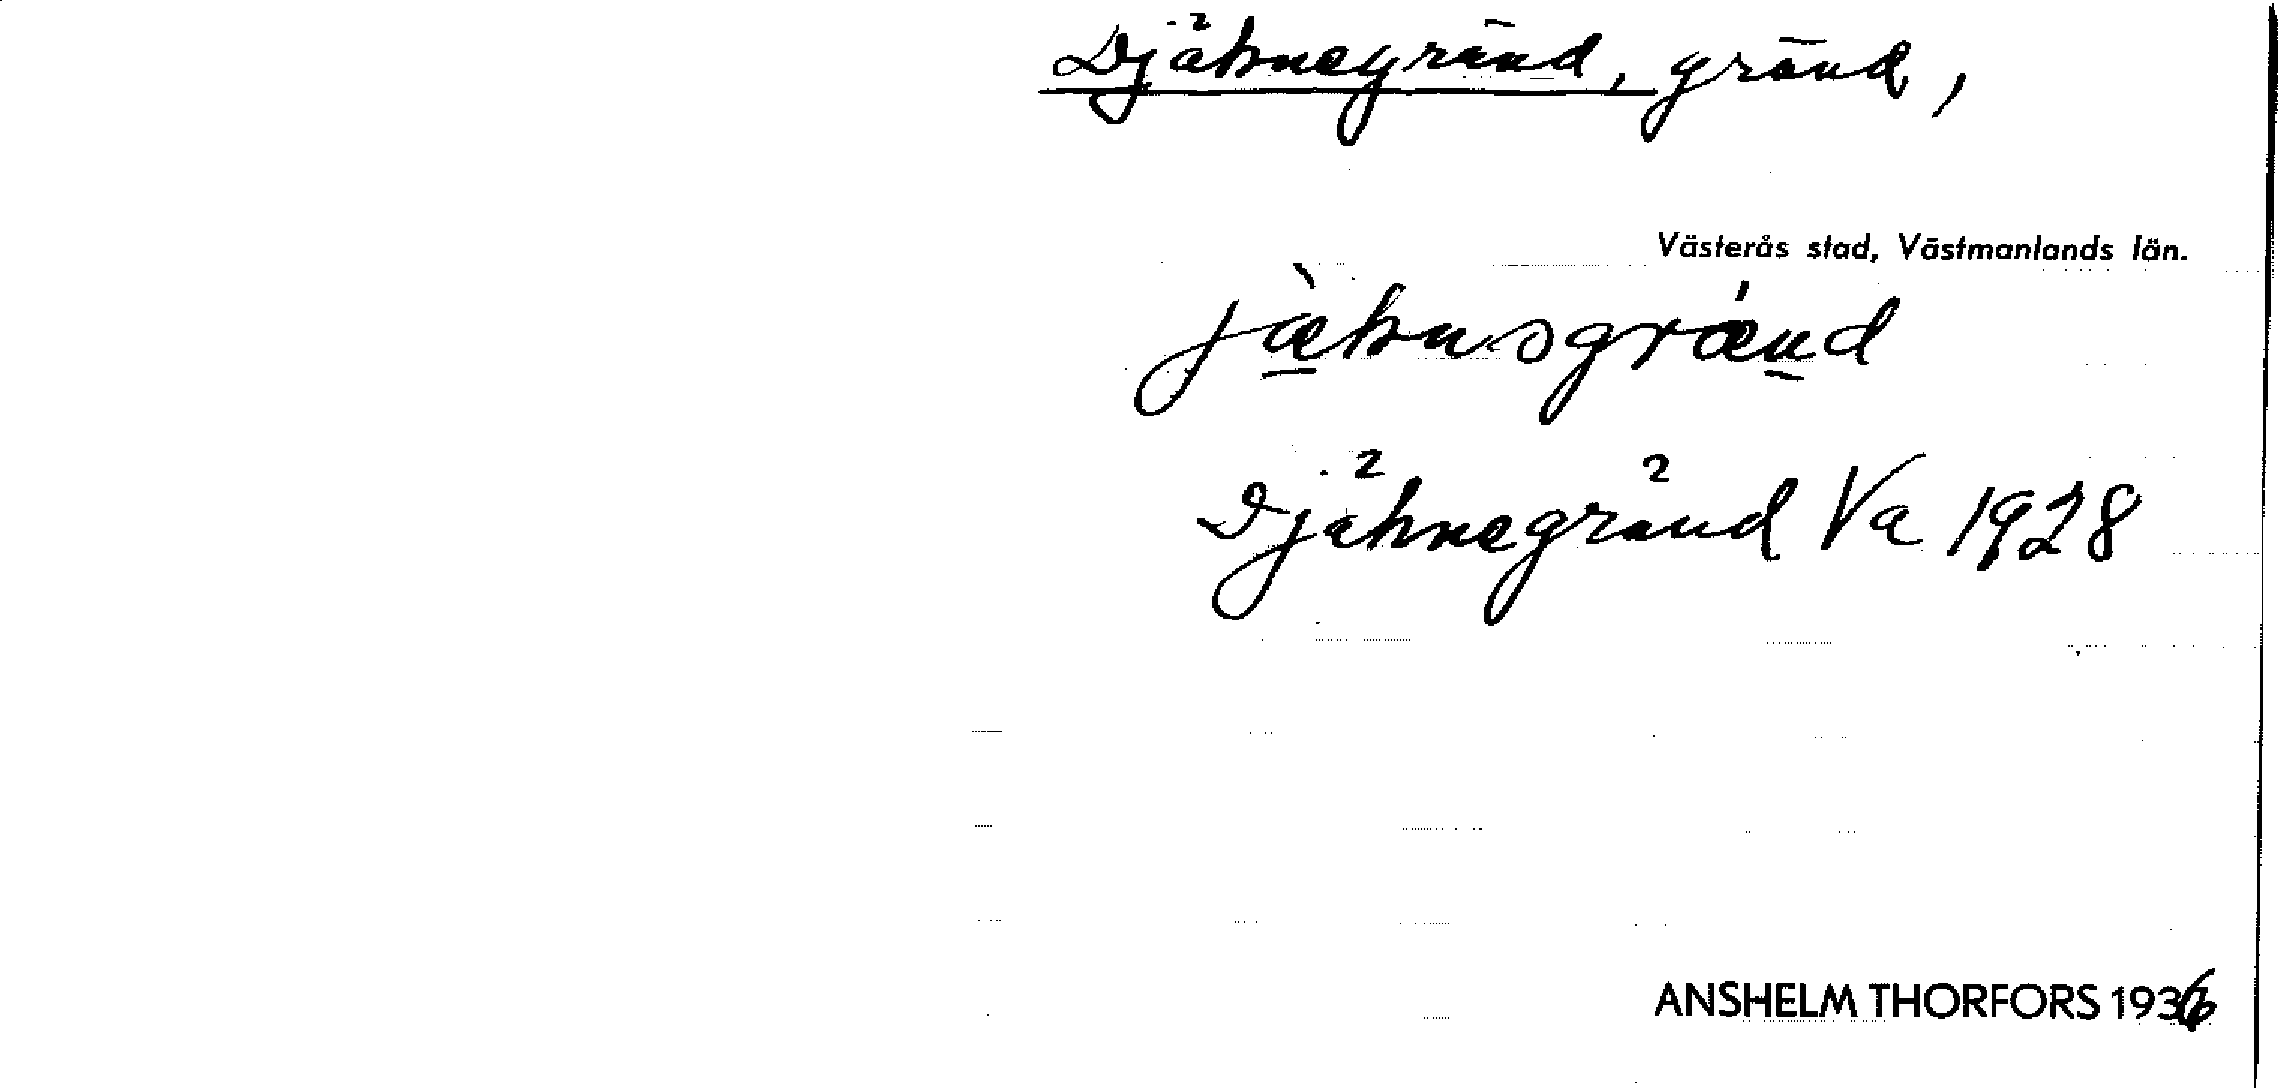 Djäknegränd, gränd,
Västerås stad, Västmanlands län.
jæknsgrænd
Djäknegränd Va 1928
ANSHELM THORFORS 1936